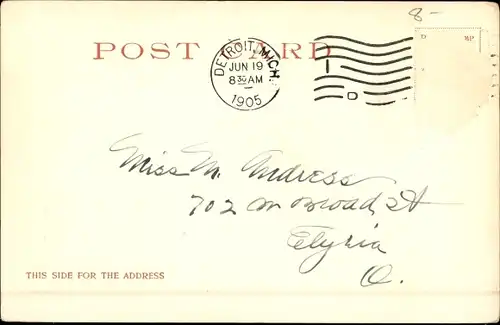 8-
POST CARD
DETROIT, MICH.
JUN 19
8 30 AM
1905
D
Miss M. Andress
702 W Broad, St
Elyria
O.
THIS SIDE FOR THE ADDRESS